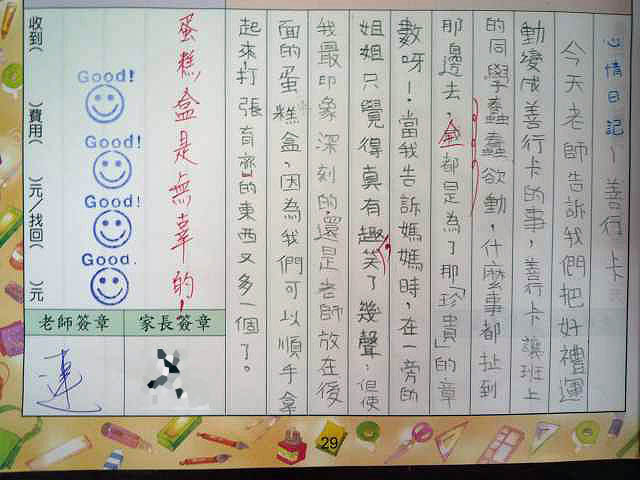 心情日記－善行卡
今天老師告訴我們把好禮運
動變成善行卡的事，善行卡讓班上
的同學蠢蠢欲動，什麼事都扯到
那邊去，全都是為了那「珍貴」的章
數呀！當我告訴媽媽時，在一旁的
姐姐只覺得真有趣笑了幾聲，但使
我最印象深刻的還是老師放在後
面的蛋糕盒，因為我們可以順手拿
起來，打張有齊的東西又多一個了。
蛋糕盒是無辜的！
Good!
Good!
Good!
Good.
收到( )費用( )元/找回( )元
家長簽章
老師簽章
連
29